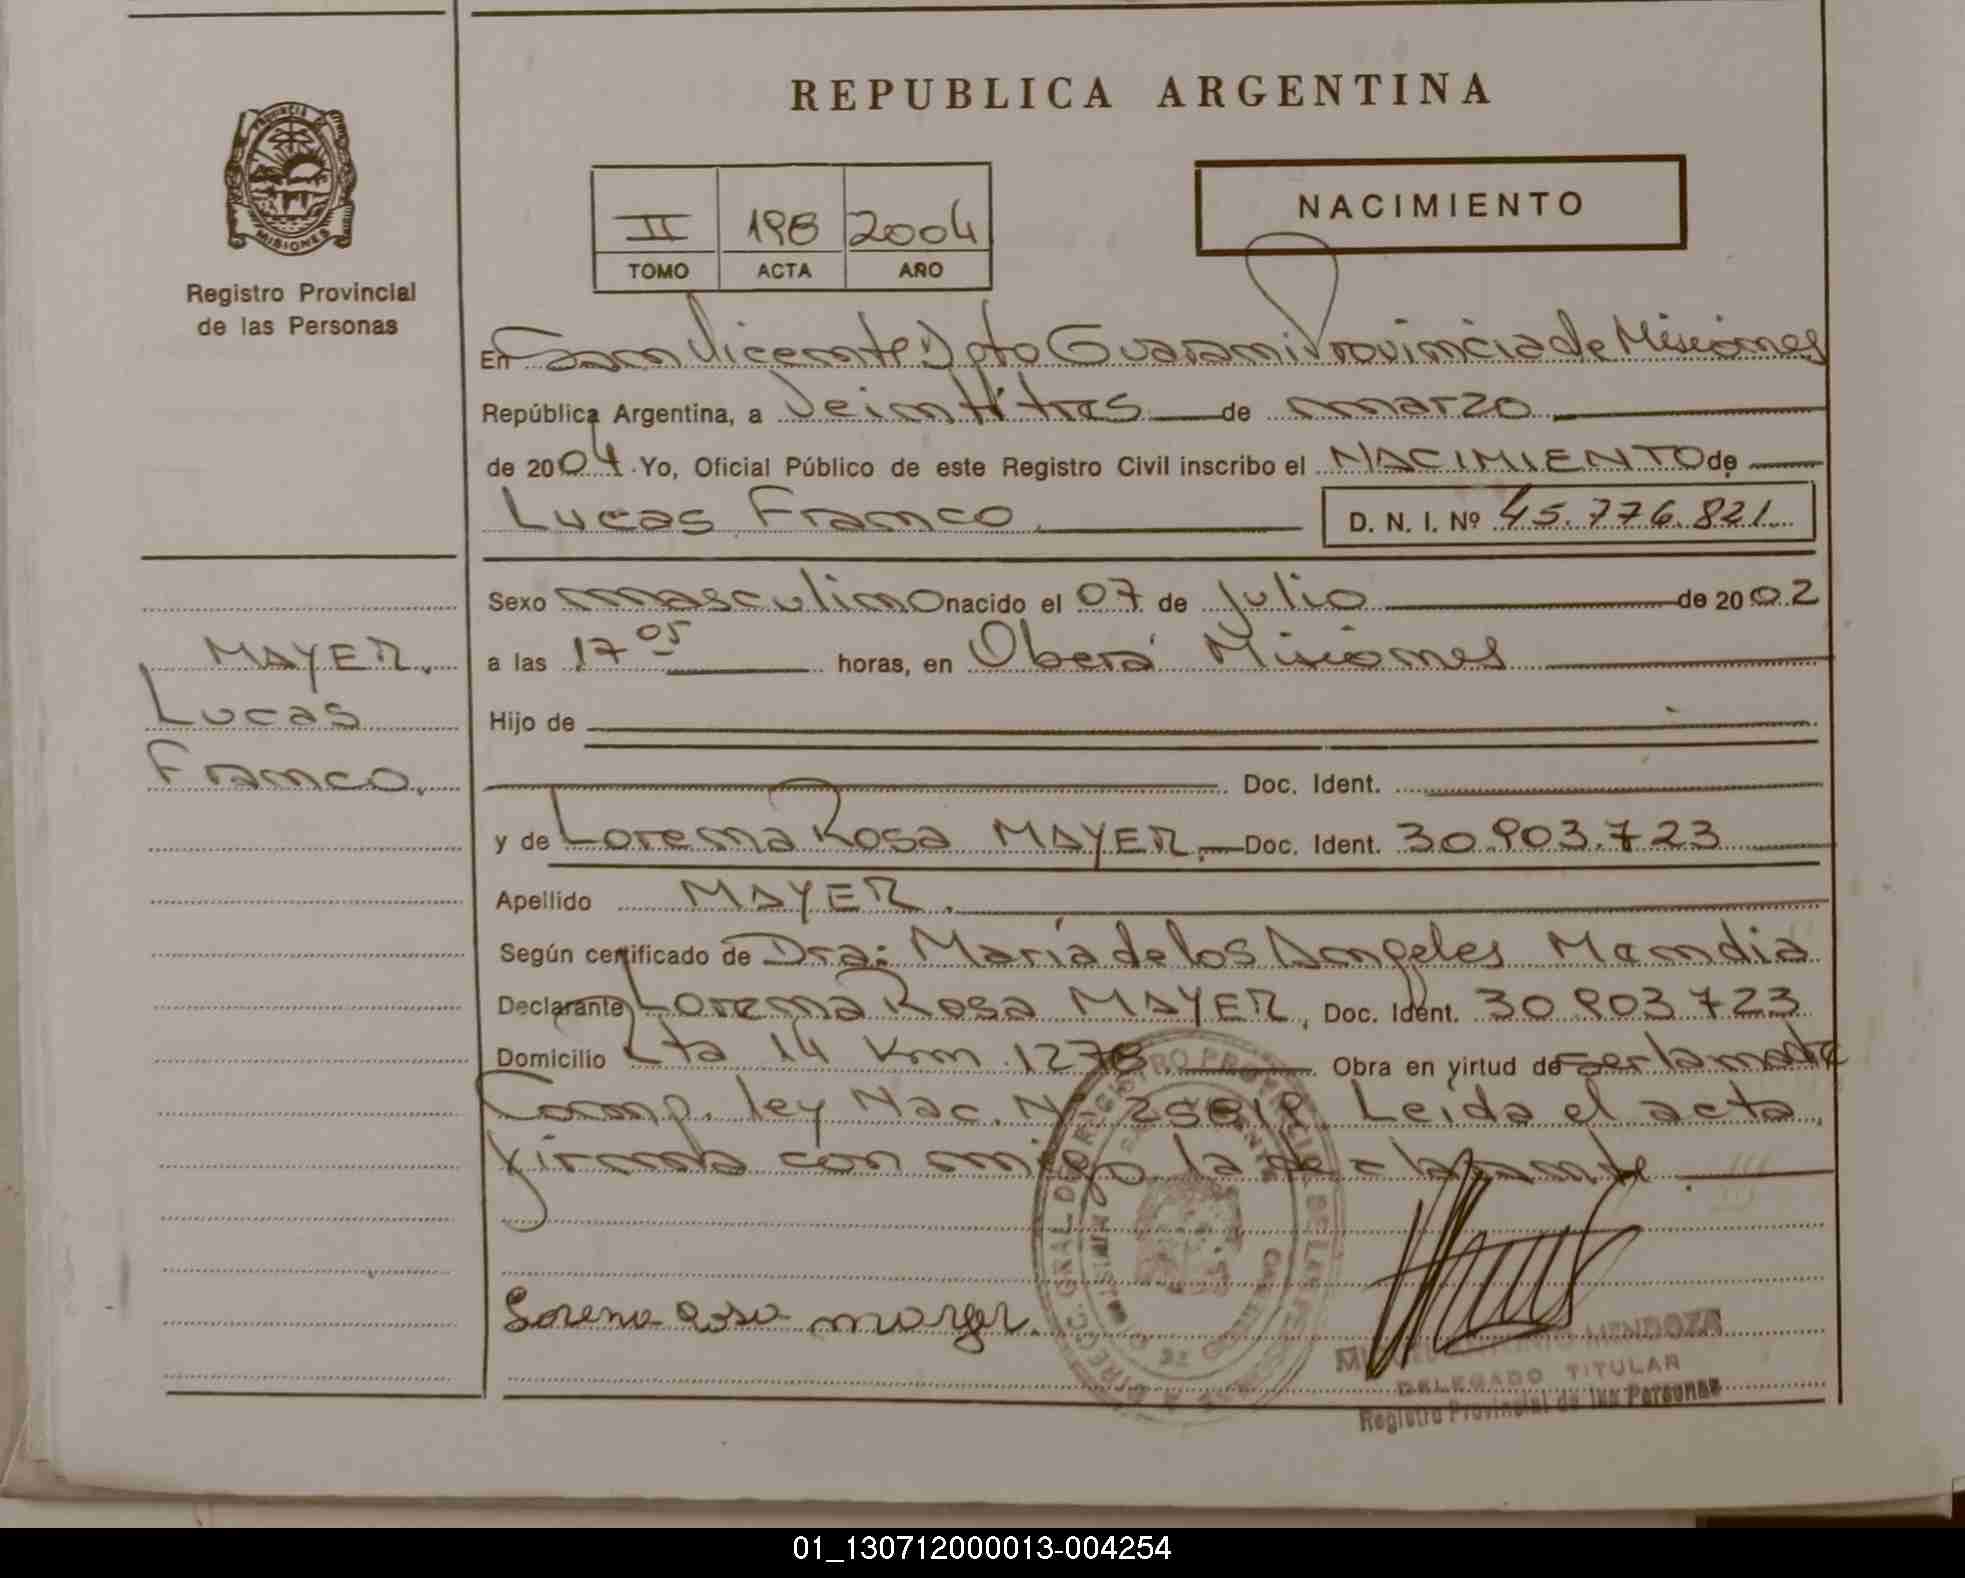 REPUBLICA ARGENTINA
PROVINCIA DE
MISIONES
Registro Provincial
de las Personas
II 198 2004
TOMO ACTA AÑO
NACIMIENTO
En San Vicente Dpto Guarani Provincia de Misiones
República Argentina, a Veintitres de marzo
de 2004 Yo, Oficial Público de este Registro Civil inscribo el NACIMIENTO de
Lucas Franco. D. N. I. Nº 45.776.821
Sexo masculino nacido el 07 de Julio de 2002
MAYER.
Lucas
Franco.
a las 17 05 horas, en Oberá Misiones
Hijo de
Doc. Ident.
y de Lorena Rosa MAYER. Doc. Ident. 30.903.723
Apellido MAYER.
Según certificado de Dra: María de los Angeles Mendia
Declarante Lorena Rosa MAYER, Doc. Ident. 30 903 723
Domicilio Rta 14 Km 1278 Obra en virtud de ser la madre
Comp. ley Nac. Nº Leida el acta,
firma con migo la declarante
Lorena Rosa mayer.
MENDOZA
DELEGADO TITULAR
Registro Provincial de las Personas
01_130712000013-004254